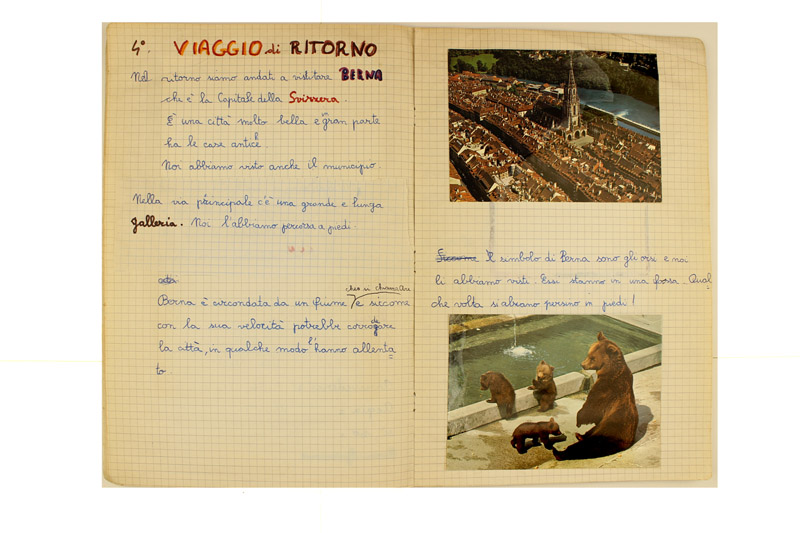 4°. VIAGGIO di RITORNO
Nel ritorno siamo andati a visitare BERNA
che è la Capitale della Svizzera.
È una città molto bella e in gran parte
ha le case antiche.
Noi abbiamo visto anche il municipio.
Nella via principale c'è una grande e lunga
galleria. Noi l'abbiamo percorsa a piedi.
che si chiama Are
Berna è circondata da un fiume e siccome
con la sua velocità potrebbe corrodegare
la città, in qualche modo l'hanno allenta
to.
Siccome Il simbolo di Berna sono gli orsi e noi
li abbiamo visti. Essi stanno in una fossa. Qual
che volta si alzano persino in piedi!